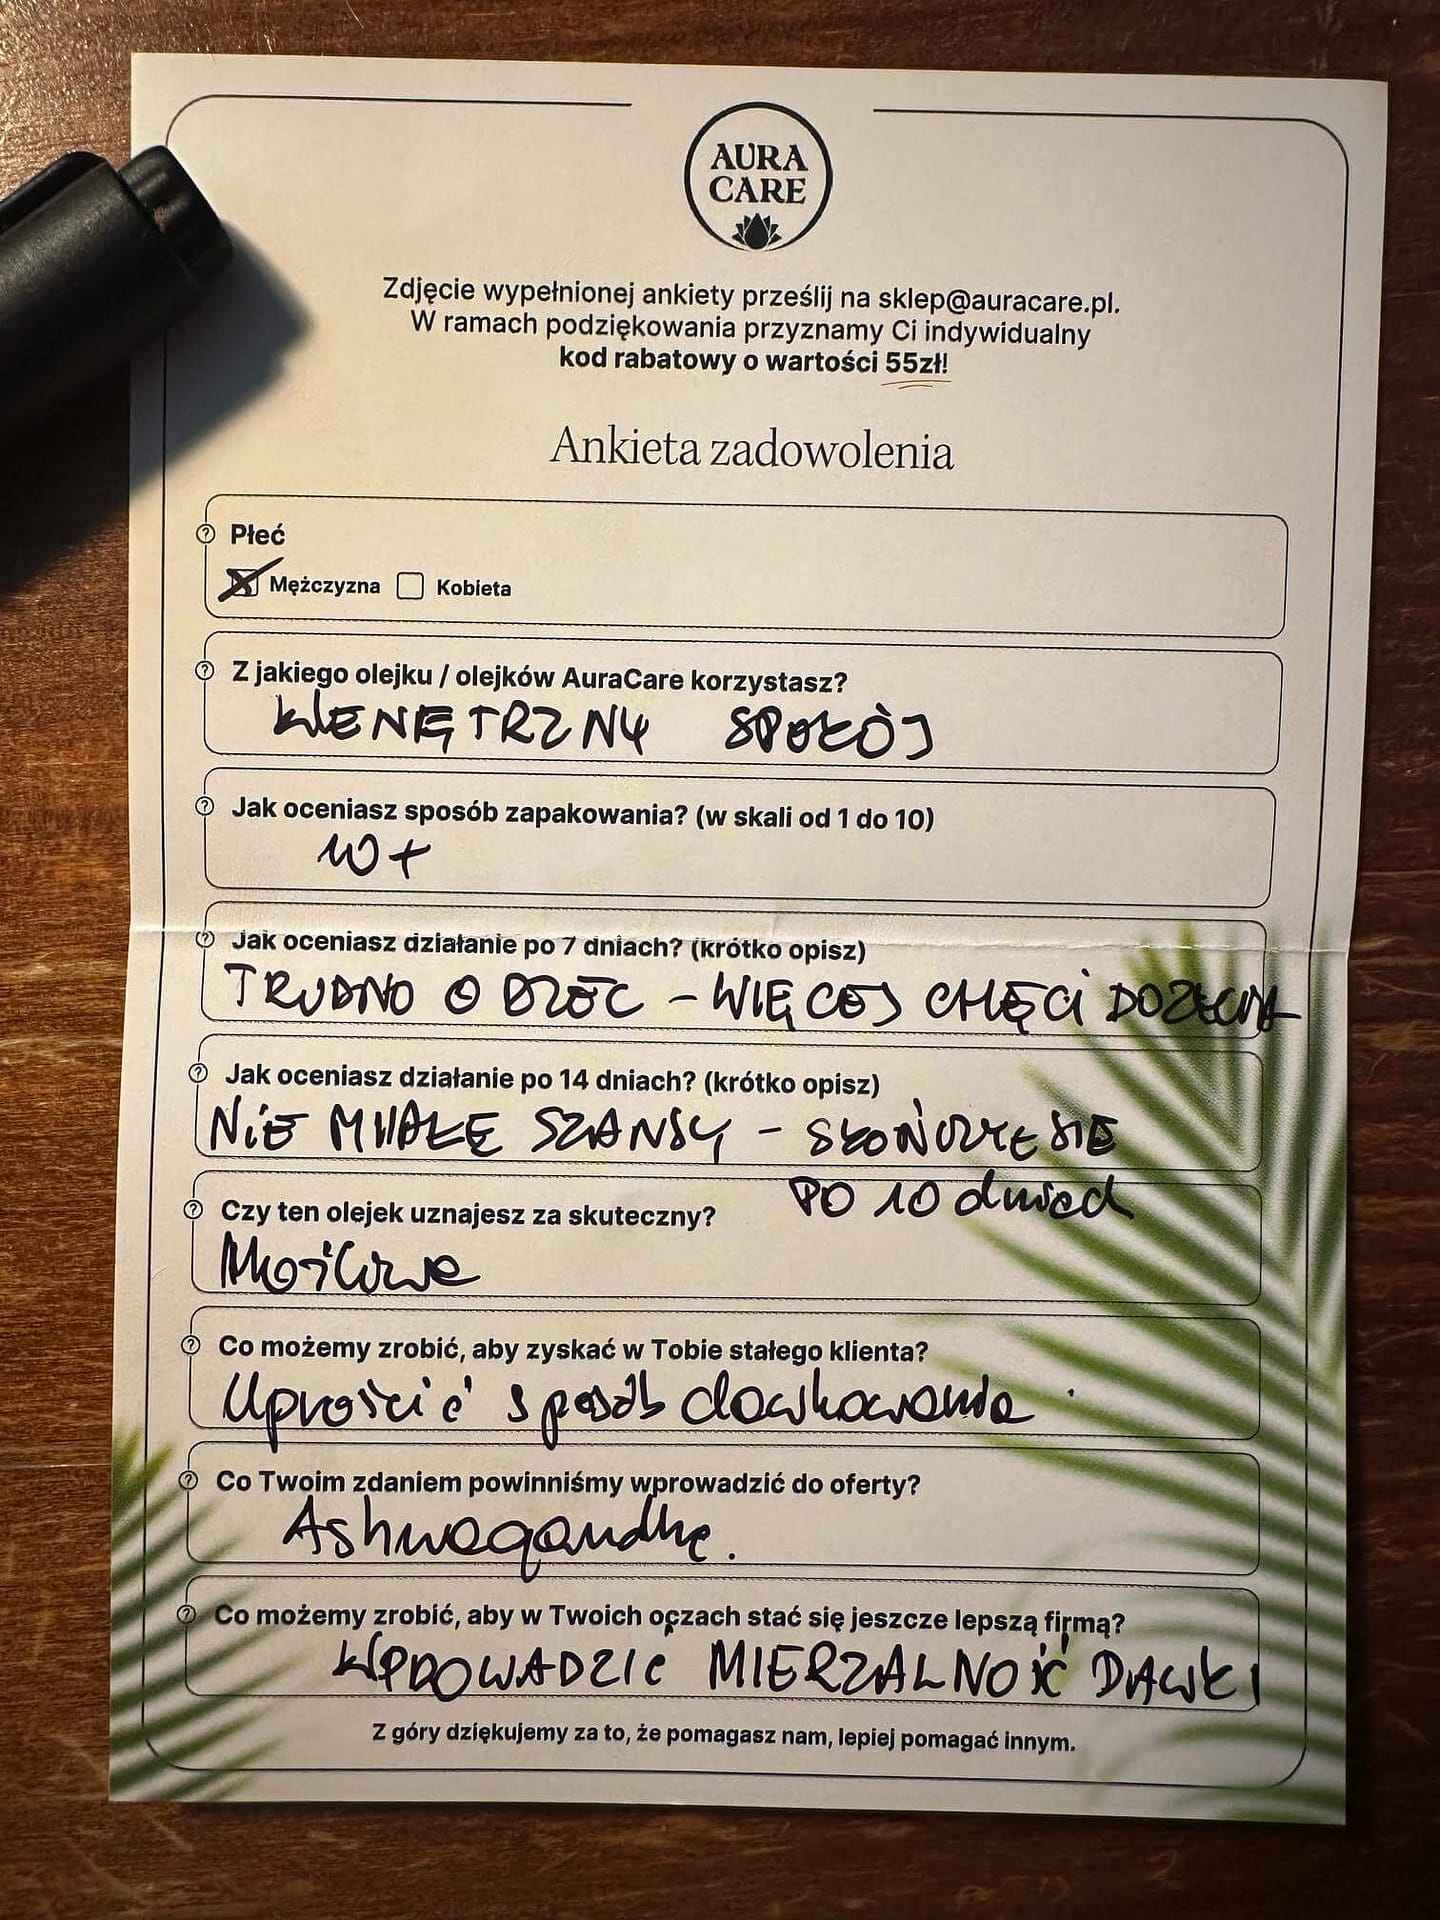 AURA
CARE
Zdjęcie wypełnionej ankiety prześlij na sklep@auracare.pl.
W ramach podziękowania przyznamy Ci indywidualny
kod rabatowy o wartości 55zł!
Ankieta zadowolenia
Płeć
Mężczyzna Kobieta
Z jakiego olejku / olejków AuraCare korzystasz?
WENĘTRZNY SPOKÓJ
Jak oceniasz sposób zapakowania? (w skali od 1 do 10)
10+
Jak oceniasz działanie po 7 dniach? (krótko opisz)
TRUDNO O DZEC - WIĘCEJ CHĘCI DO
Jak oceniasz działanie po 14 dniach? (krótko opisz)
NiE MIAŁĘ SZANSY - SKOŃCZYŁ SIĘ
PO 10 dniach
Czy ten olejek uznajesz za skuteczny?
Możliwe
Co możemy zrobić, aby zyskać w Tobie stałego klienta?
Uprościć sposób dawkowania.
Co Twoim zdaniem powinniśmy wprowadzić do oferty?
Ashwagandhę.
Co możemy zrobić, aby w Twoich oczach stać się jeszcze lepszą firmą?
WPROWADZIĆ MIERZALNOŚĆ DAWKI
Z góry dziękujemy za to, że pomagasz nam, lepiej pomagać innym.